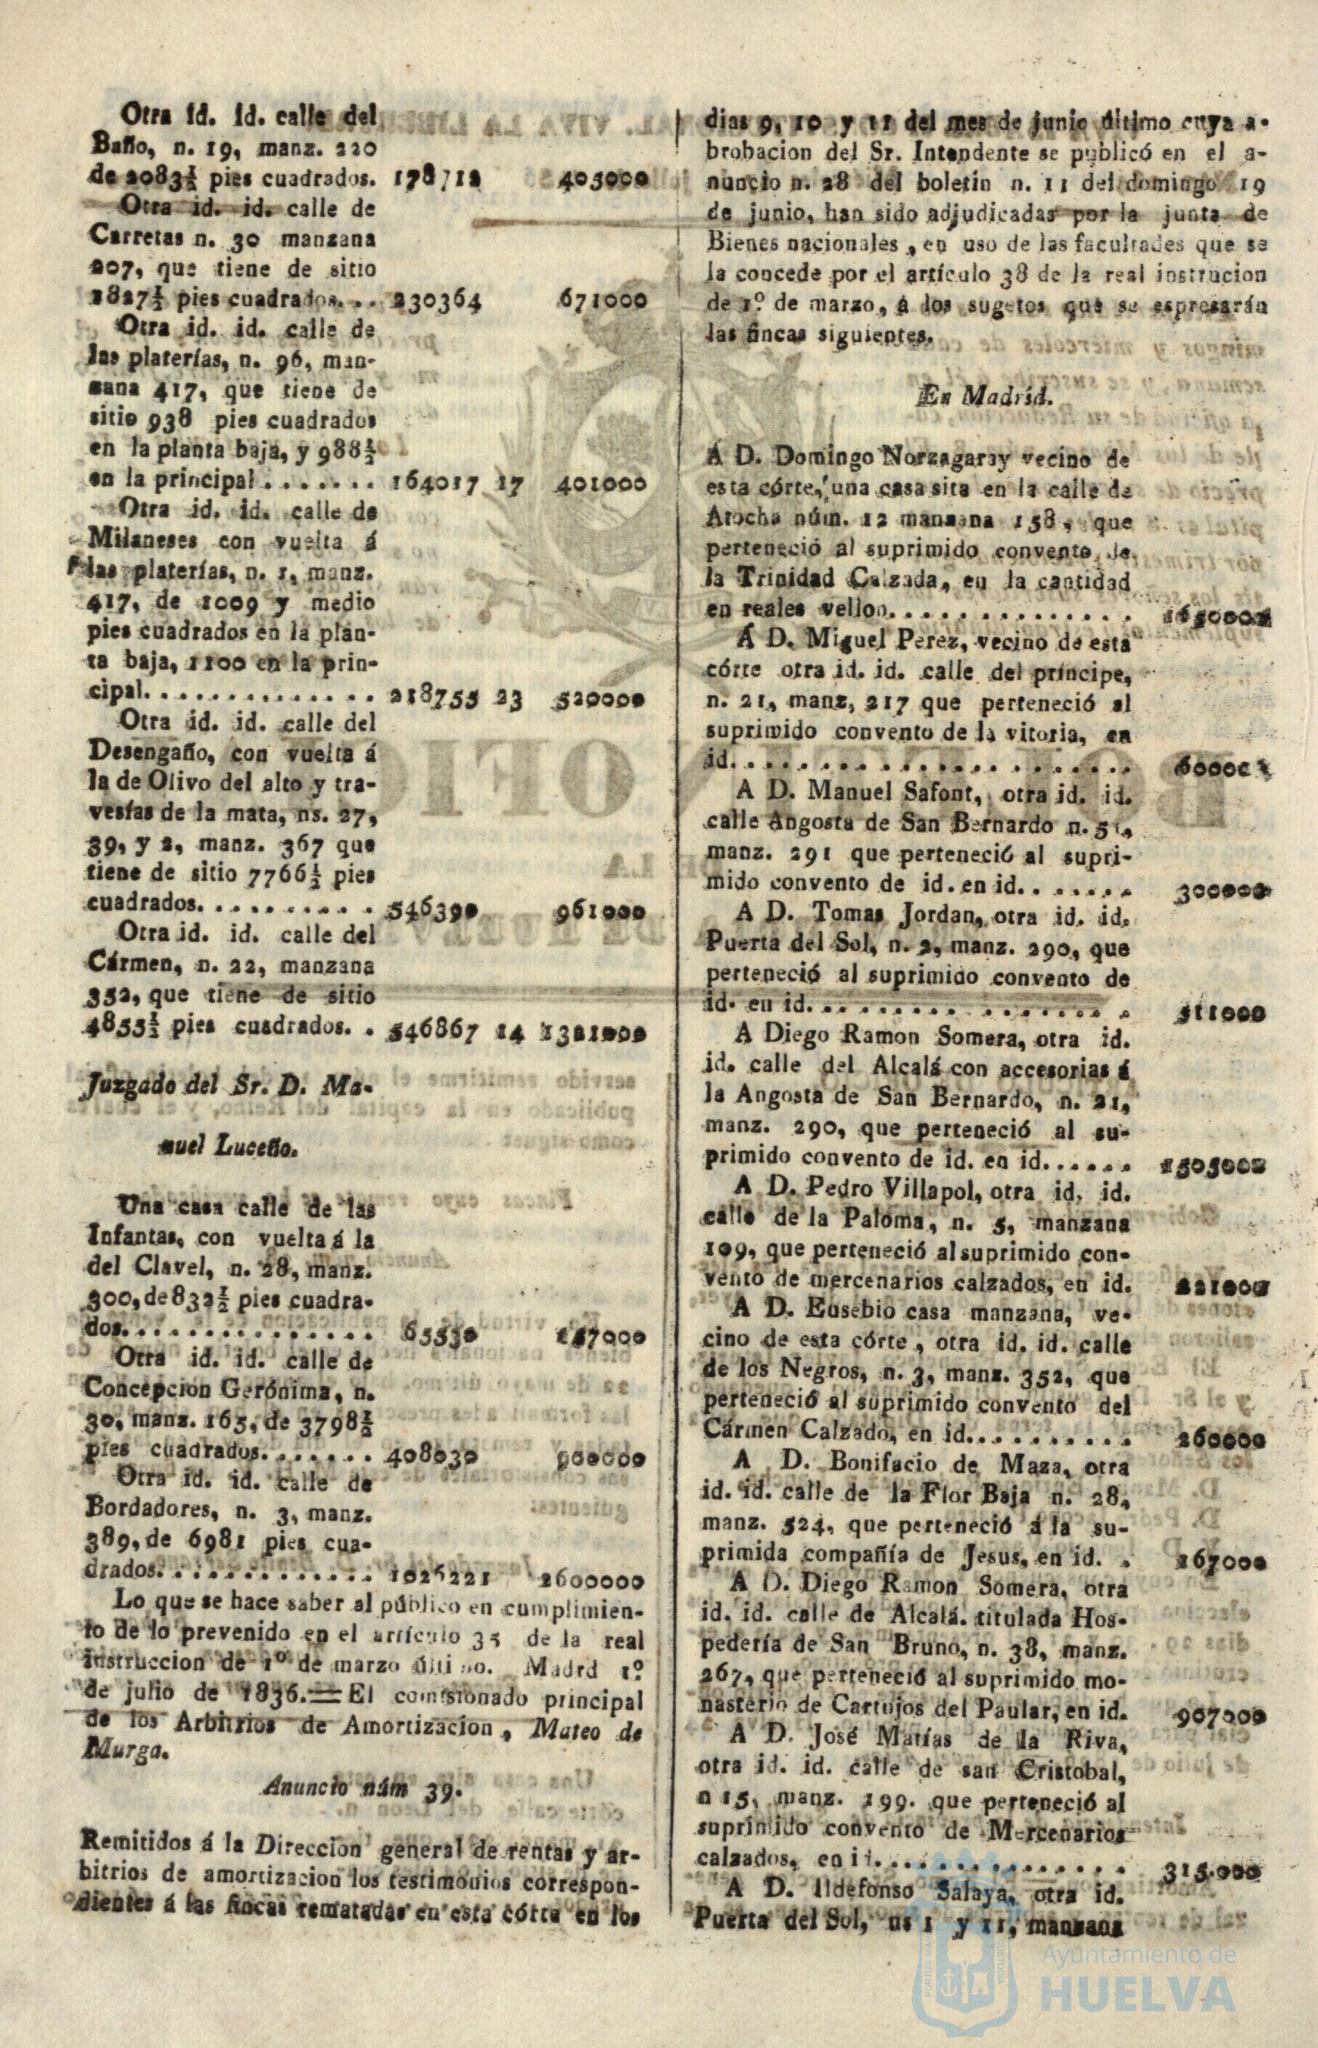 Otra id. id. calle del
Baño, n. 19, manz. 220
de 2083½ pies cuadrados. 178712 405000
Otra id. id. calle de
Carretas n. 30 manzana
207, que tiene de sitio
1827½ pies cuadrados. . . 230364 671000
Otra id. id. calle de
las platerías, n. 96, man-
zana 417, que tiene de
sitio 938 pies cuadrados
en la planta baja, y 988½
en la principal . . . . . . . 164017 17 401000
Otra id. id. calle de
Milaneses con vuelta á
las platerías, n. 1, manz.
417, de 1009 y medio
pies cuadrados en la plan-
ta baja, 1100 en la prin-
cipal. . . . . . . . . . . . . . 218755 23 520000
Otra id. id. calle del
Desengaño, con vuelta á
la de Olivo del alto y tra-
vesías de la mata, ns. 27,
39, y 2, manz. 367 que
tiene de sitio 7766½ pies
cuadrados. . . . . . . . . . 546390 961000
Otra id. id. calle del
Cármen, n. 22, manzana
352, que tiene de sitio
4855½ pies cuadrados. . 546867 14 1321000
Juzgado del Sr. D. Ma-
nuel Luceño.
Una casa calle de las
Infantas, con vuelta á la
del Clavel, n. 28, manz.
300, de 832½ pies cuadra-
dos. . . . . . . . . . . . . . . 65530 157000
Otra id. id. calle de
Concepcion Gerónima, n.
30, manz. 165, de 3798½
pies cuadrados. . . . . . . 408030 900000
Otra id. id. calle de
Bordadores, n. 3, manz.
389, de 6981 pies cua-
drados. . . . . . . . . . . . . 1026221 2600000
Lo que se hace saber al público en cumplimien-
to de lo prevenido en el artículo 35 de la real
instruccion de 1º de marzo último. Madrd 1º
de julio de 1836.=El comisionado principal
de los Arbitrios de Amortizacion, Mateo de
Murga.
Anuncio núm 39.
Remitidos á la Direccion general de rentas y ar-
bitrios de amortizacion los testimonios correspon-
dientes á las fincas rematadas en esta córte en los
dias 9, 10 y 11 del mes de junio último cuya a-
brobacion del Sr. Intendente se publicó en el a-
nuncio n. 28 del boletin n. 11 del domingo 19
de junio, han sido adjudicadas por la junta de
Bienes nacionales, en uso de las facultades que se
la concede por el artículo 38 de la real instrucion
de 1º de marzo, á los sugetos que se espresarán
las fincas siguientes.
En Madrid.
Á D. Domingo Norzagaray vecino de
esta córte, una casa sita en la calle de
Atocha núm. 12 manzana 158, que
perteneció al suprimido convento de
la Trinidad Calzada, en la cantidad
en reales vellon. . . . . . . . . . . . . .
Á D. Miguel Perez, vecino de esta
córte otra id. id. calle del príncipe,
n. 21, manz, 217 que perteneció al
suprimido convento de la vitoria, en
id. . . . . . . . . . . . . . . . . . . . .
A D. Manuel Safont, otra id. id.
calle Angosta de San Bernardo n. 51,
manz. 291 que perteneció al supri-
mido convento de id. en id. . . . . . . 300000
A D. Tomas Jordan, otra id. id.
Puerta del Sol, n. 2, manz. 290, que
perteneció al suprimido convento de
id. en id. . . . . . . . . . . . . . . . . 511000
A Diego Ramon Somera, otra id.
id. calle del Alcalá con accesorias á
la Angosta de San Bernardo, n. 21,
manz. 290, que perteneció al su-
primido convento de id. en id. . . . . . 1505000
A D. Pedro Villapol, otra id. id.
calle de la Paloma, n. 5, manzana
109, que perteneció al suprimido con-
vento de mercenarios calzados, en id. 221000
A D. Eusebio casa manzana, ve-
cino de esta córte, otra id. id. calle
de los Negros, n. 3, manz. 352, que
perteneció al suprimido convento del
Cármen Calzado, en id. . . . . . . . . . 260000
A D. Bonifacio de Maza, otra
id. id. calle de la Flor Baja n. 28,
manz. 524, que perteneció á la su-
primida compañía de Jesus, en id. . 167000
A D. Diego Ramon Somera, otra
id. id. calle de Alcalá. titulada Hos-
pedería de San Bruno, n. 38, manz.
267, que perteneció al suprimido mo-
nasterio de Cartujos del Paular, en id. 907000
A D. José Matías de la Riva,
otra id. id. calle de san Cristobal,
n 15, manz. 199. que perteneció al
suprimido convento de Mercenarios
calzados, en id. . . . . . . . . . . . . . 315.000
A D. Ildefonso Salaya, otra id.
Puerta del Sol, ns 1 y 11, manzana
Ayuntamiento de
HUELVA